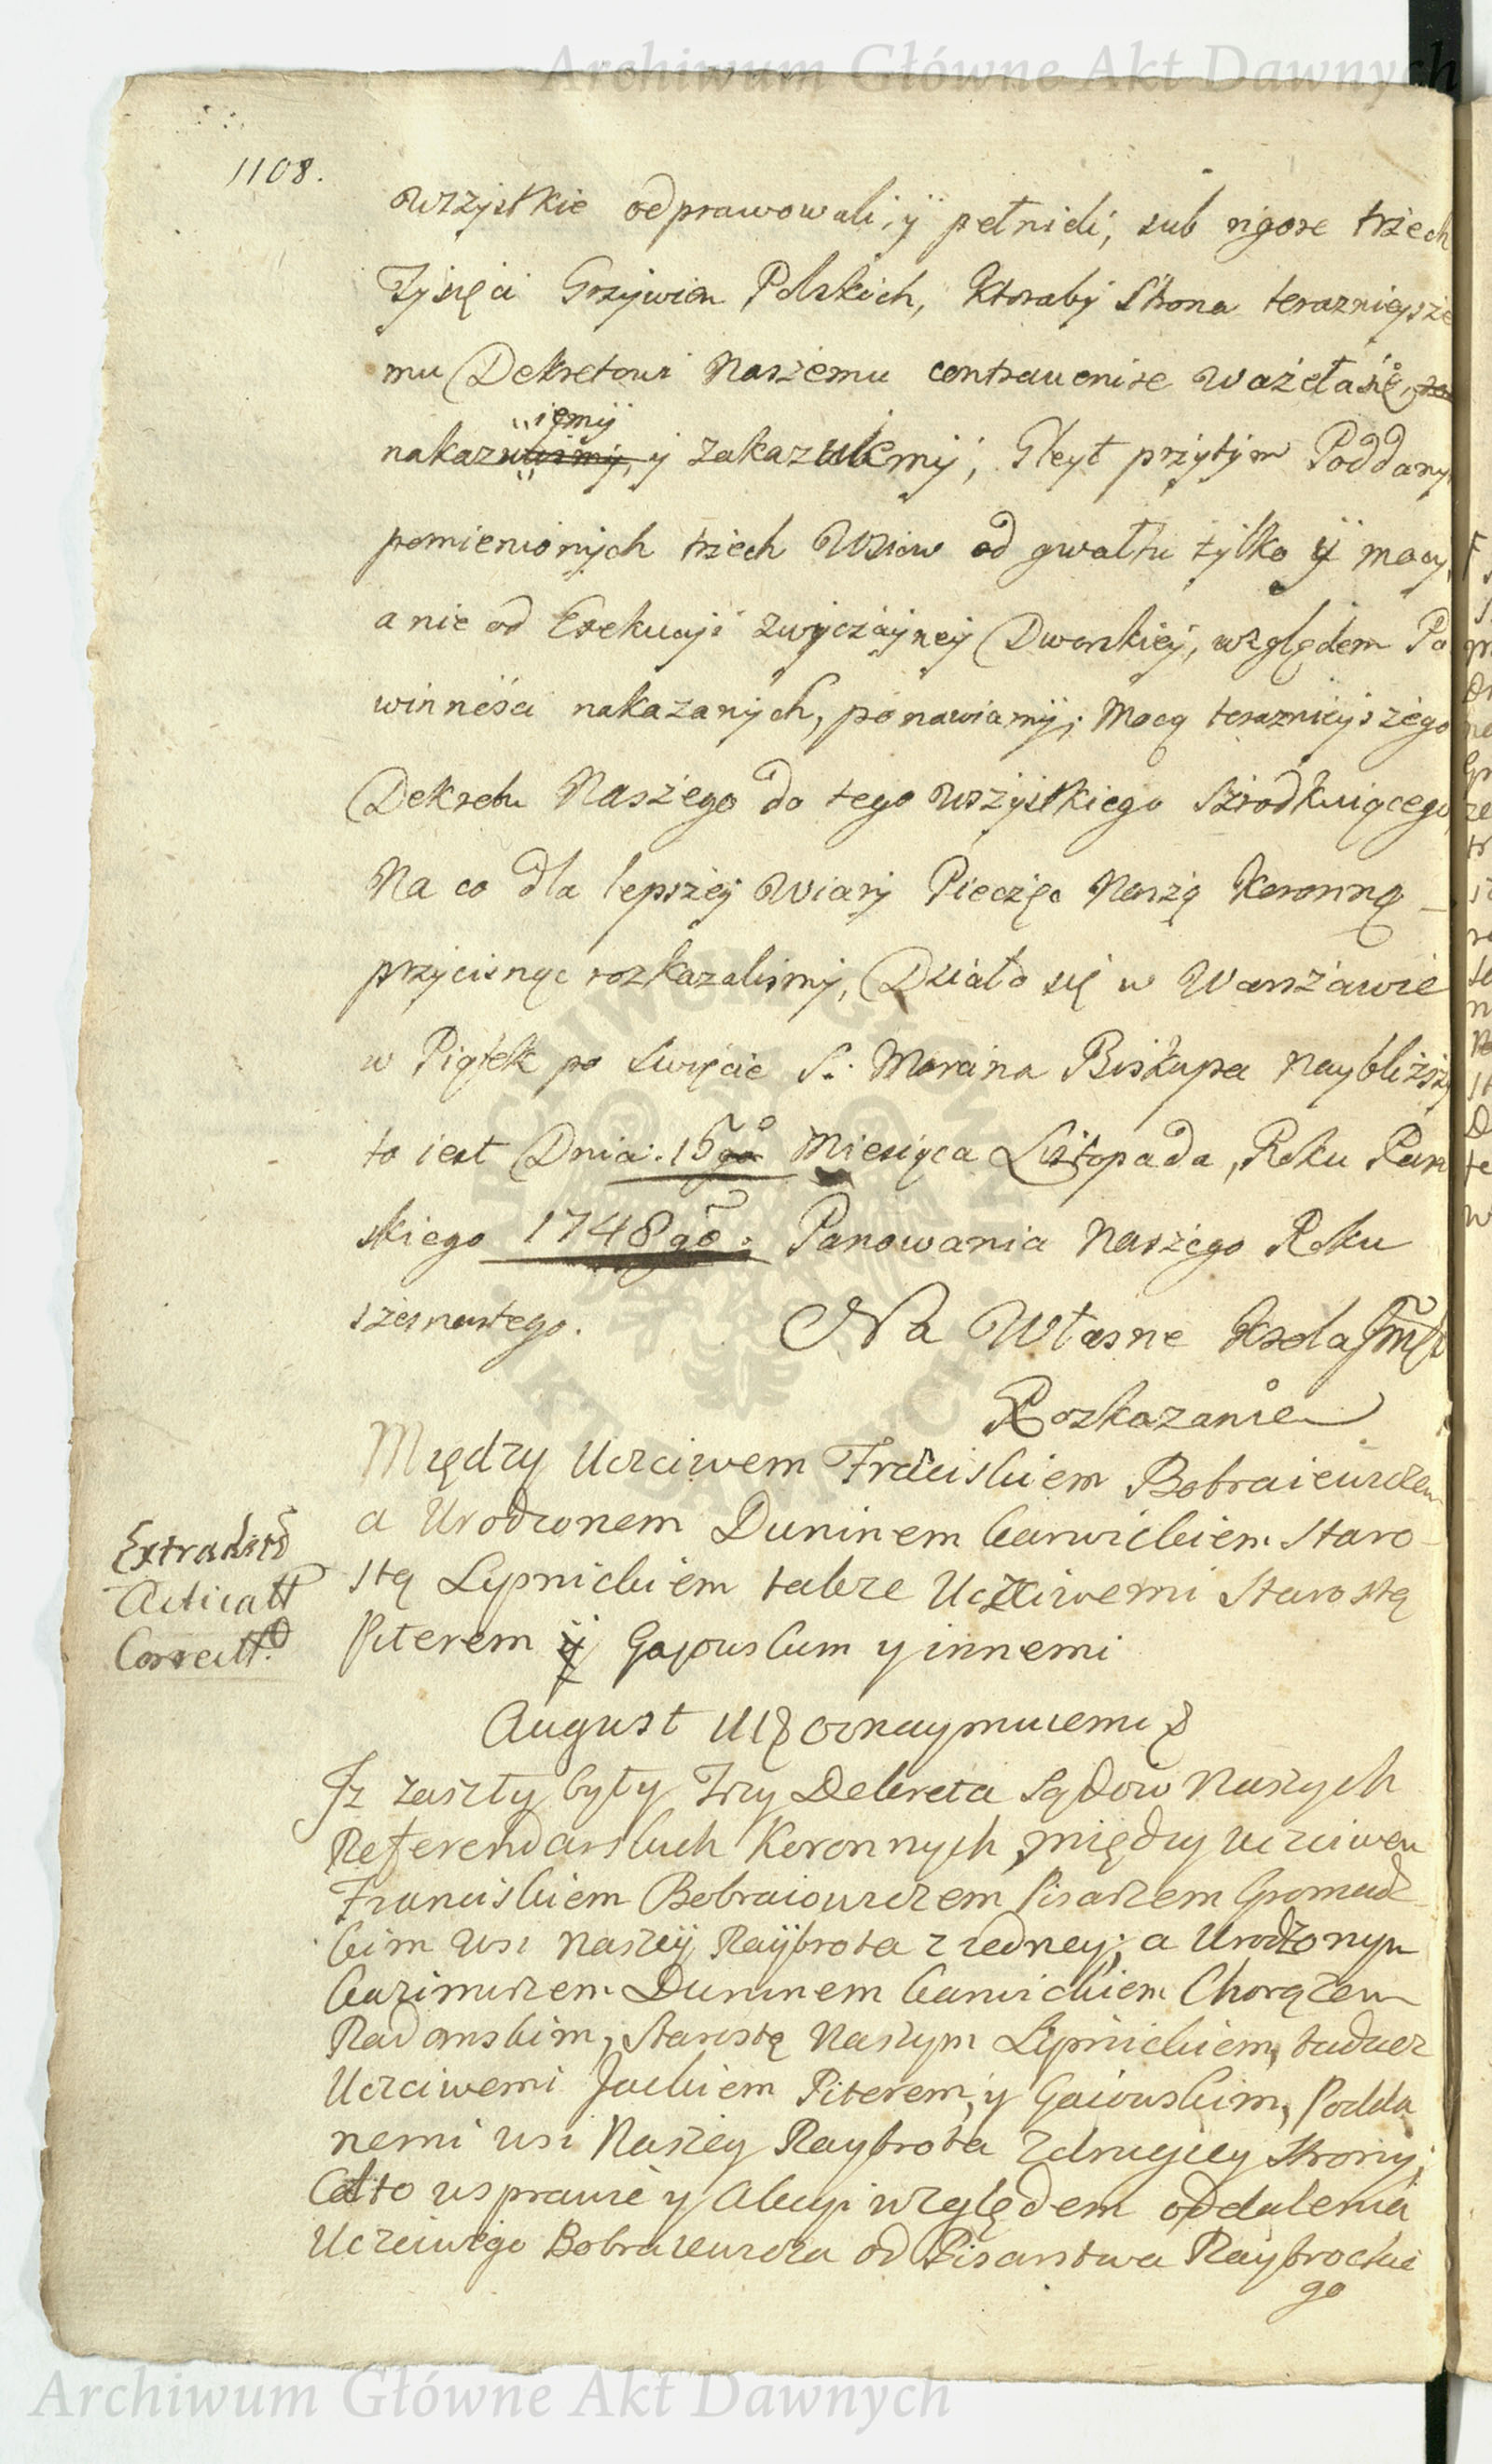 Archiwum Główne Akt Dawnych
1108.
wszystkie odprawowali, y pełnieli, sub rigore trzech
Tysięci Grzywien Polskich, Ktoraby Strona teraznieysze
mu Dekretowi Naszemu contravenire ważełasię,
nakazuiemy, y zakazuiemy, Gleyt przytym Poddany
pomienionych trzech Wsiow od gwałtu tylko y mocy,
a nie od Exekucyi zwyczayney Dworskiey, względem Po
winności nakazanych, ponawiamy; Mocą teraznieyszego
Dekretu Naszego do tego wszystkiego szrodkuiącego,
Na co dla lepszey wiary Pieczęc Naszą Koronną
przycisnąc rozkazalismy, Działo się w Warszawie
w Piątek po Swięcie S. Marcina Biskupa naybliższy
to iest Dnia. 15go Miesiąca Listopada, Roku Pan
skiego 1748go. Panowania Naszego Roku
szesnastego. Na Własne Krola Jmći
Rozkazanie
Między Uczciwem Franciskiem Bobraiewiczem
a Urodzonem Duninem Karwickiem Staro-
stą Lipnickiem także Uczciwemi Starostą
Piterem y Gajowskim y innemi
August III ocznaymuiemi
Iz zaszły były Trzy Dekreta Sądow Naszych
Referendarskich Koronnych, między uczciwem
Franciskiem Bobraiowiczem Pisarzem Gromadz
kim wsi Naszey Raybrota z iedney; a Urodzonym
Kazimirzem Duninem Karwickiem Chorążem
Radomskim, Starostą Naszym Lipnickiem, tudziez
Uczciwemi Jackiem Piterem, y Gaiowskim, Podda
nemi wsi Naszey Raybrota z drugiey Strony,
A to w sprawie y Akcyi względem oddalenia
Uczciwego Bobraiewicza od Pisarstwa Raybrockie
go
Extradit
Acticatt
Correctt
Archiwum Główne Akt Dawnych